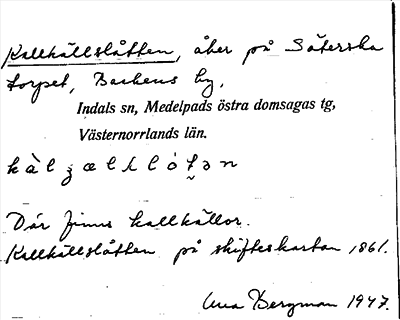 Kallkällslåtten, åker på Säterska
torpet, Backens by,
Indals sn, Medelpads östra domsagas tg,
Västernorrlands län.
Där finns kallkällor.
Kallkällslåtten på skifteskartan 1861.
Bergman 1947.